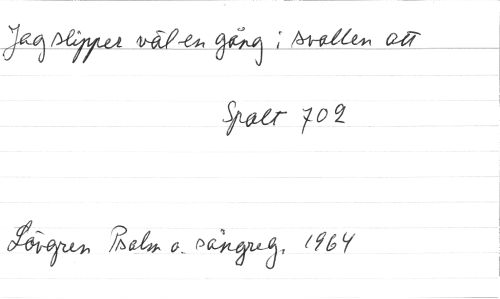 Jag slipper väl en gång i svallen att
Spalt 702
Lövgren Psalm o. sångreg. 1964